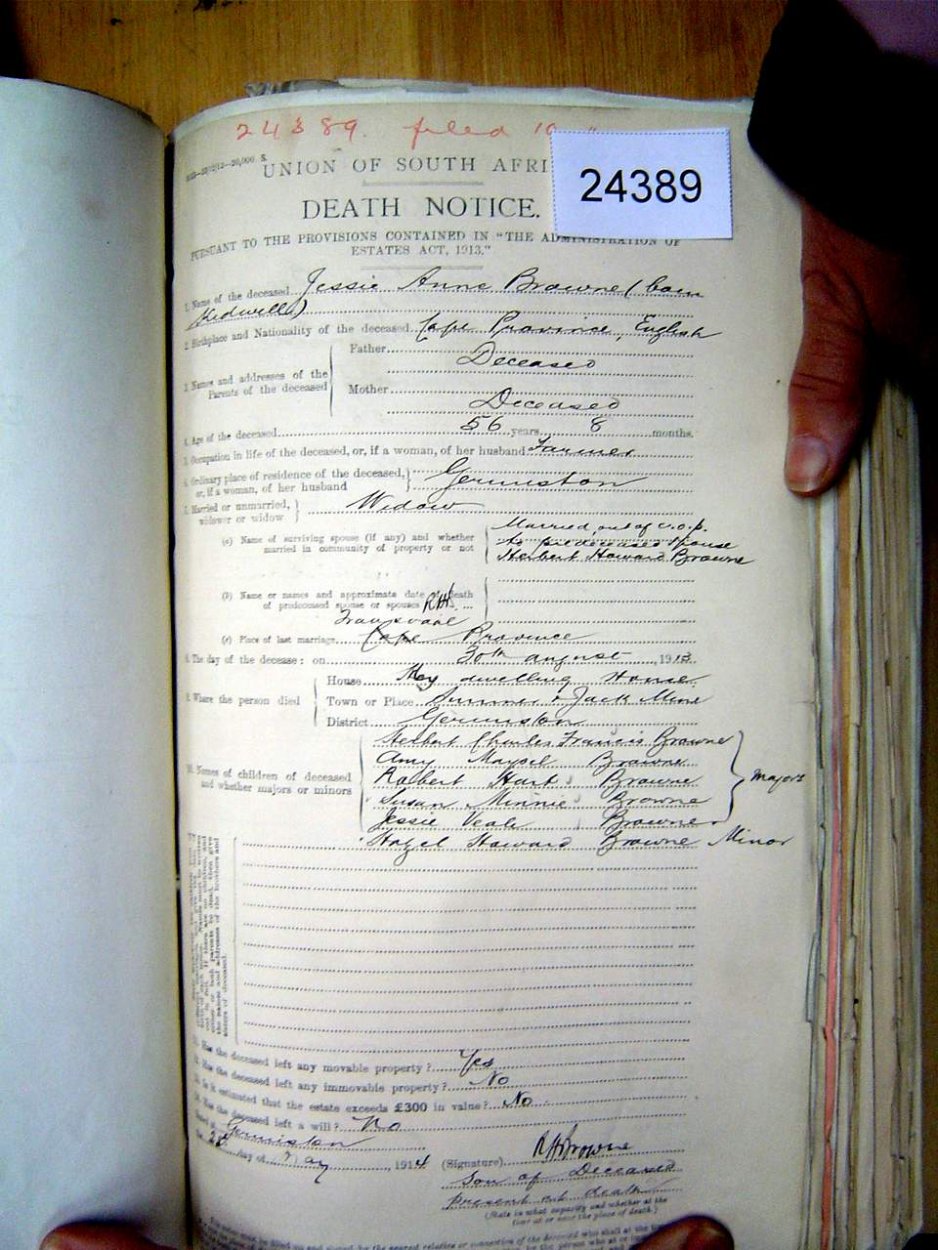 24389. filed 10
24389
UNION OF SOUTH AFRI
DEATH NOTICE.
PURSUANT TO THE PROVISIONS CONTAINED IN "THE ADMINISTRATION OF
ESTATES ACT, 1913."
1. Name of the deceased Jessie Anne Browne (born
Kidwell)
2. Birthplace and Nationality of the deceased Cape Province, English
3. Names and addresses of the Parents of the deceased
Father Deceased
Mother Deceased
4. Age of the deceased 56 years 8 months.
5. Occupation in life of the deceased, or, if a woman, of her husband Farmer
6. Ordinary place of residence of the deceased, or, if a woman, of her husband Germiston
7. Married or unmarried, widower or widow Widow
(a) Name of surviving spouse (if any) and whether married in community of property or not
Married out of c.o.p.
to predeceased spouse
Herbert Howard Browne
(b) Name or names and approximate date of death
of predeceased spouse or spouses RHB
Transvaal
(c) Place of last marriage Cape Province
8. The day of the decease: on 30th August, 1913
9. Where the person died
House My dwelling House
Town or Place Simmer & Jack Mine
District Germiston
10. Names of children of deceased and whether majors or minors
Herbert Charles Francis Browne
Amy Browne
Robert Hart Browne
Susan Minnie Browne
Jessie Veale Browne
Majors
Hazel Howard Browne Minor
11. Has the deceased left any movable property? Yes
12. Has the deceased left any immovable property? No
13. Is it estimated that the estate exceeds £300 in value? No
14. Has the deceased left a will? No
Germiston
day of May, 1914
(Signature) RHBrowne
Son of Deceased
present at death
(State in what capacity and whether at the
time at or near the place of death.)